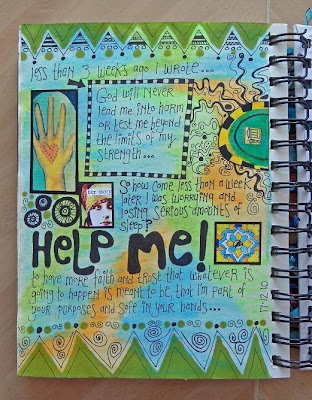 less than 3 weeks ago I wrote...
God will Never
lead me into harm
or test me beyond
the limits of my
strength...
her story
So how come less than a week
later I was worrying and
losing serious amounts of
sleep?
HELP ME!
to have more faith and trust that whatever is
going to happen is meant to be, that I'm part of
your purposes and safe in your hands...
17.12.10